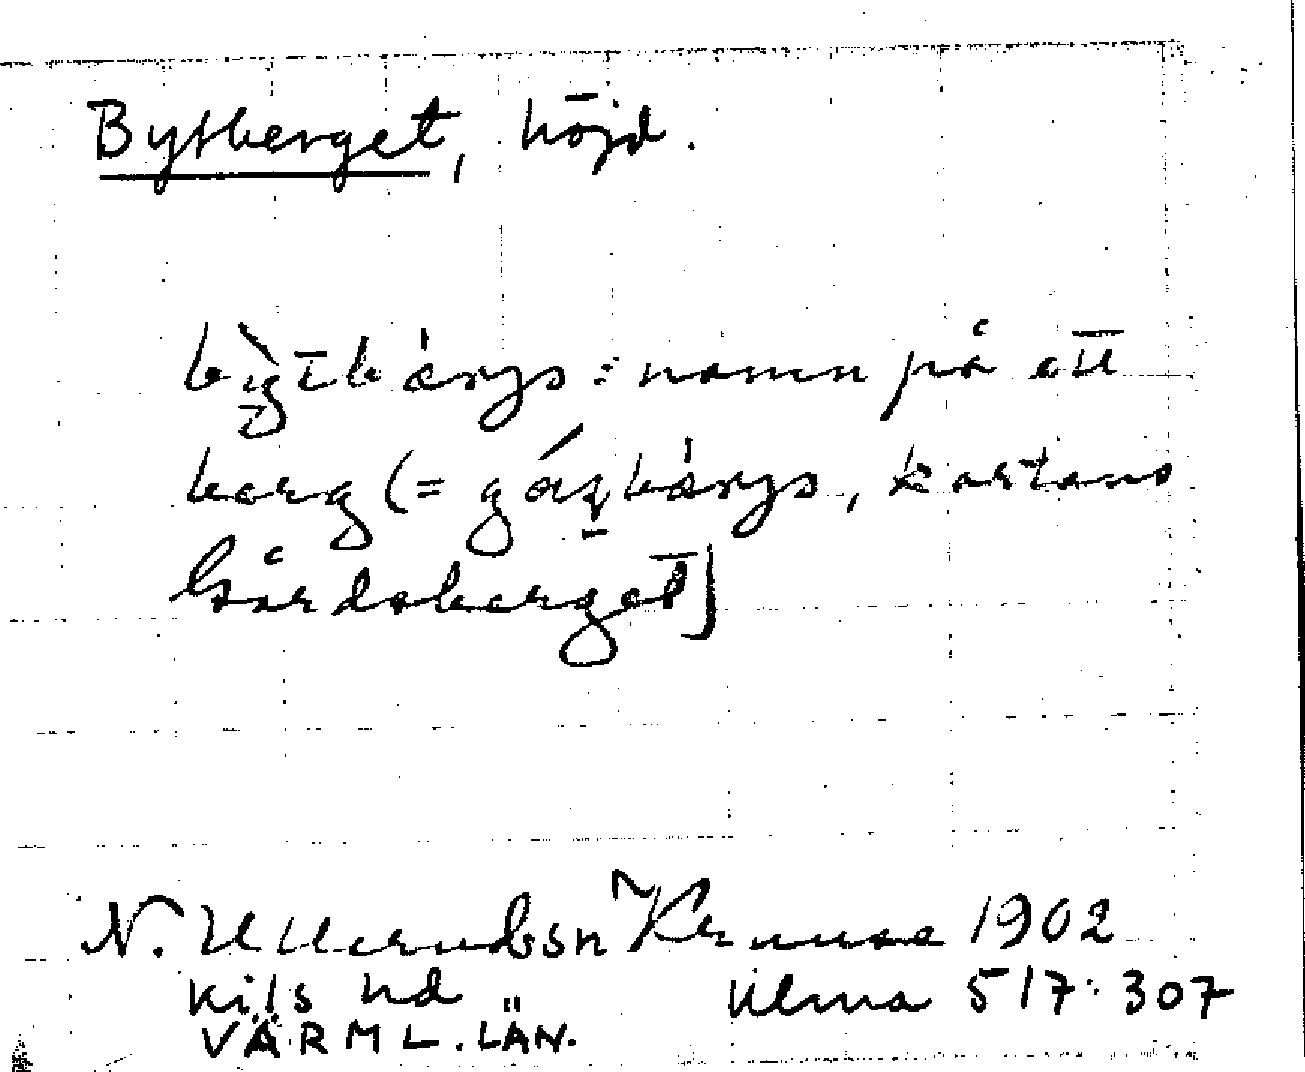 Bytberget, höjd.
bỳtbærjə: namn på ett
berg (= gáɽbærjə, kartans
Gårdsberget)
N. Ullerud sn 1902
Kils hd Ulma 517:307
VÄRML. LÄN.